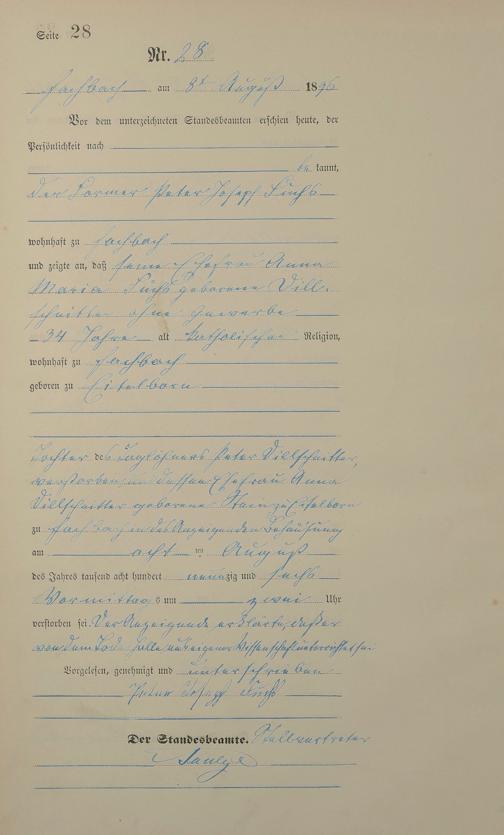 Seite 28
Nr. 28
Fachbach am 8t August 1896
Vor dem unterzeichneten Standesbeamten erschien heute, der
Persönlichkeit nach
be kannt,
der Former Peter Joseph Fuchs
wohnhaft zu Fachbach
und zeigte an, daß seine Ehefrau Anna
Maria Fuchs geborene Dill-
schnitter ohne Gewerbe
34 Jahre alt katholischer Religion,
wohnhaft zu Fachbach
geboren zu Eitelborn
Tochter des Taglöhners Peter Dillschnitter,
verstorben und dessen Ehefrau Anna
Dillschnitter geborene Stein zu Eitelborn
zu Fachbach in des Anzeigenden Behausung
am acht ten August
des Jahres tausend acht hundert neunzig und sechs
Vormittags um zwei Uhr
verstorben sei. Der Anzeigende erklärte, daß er
von dem Todesfalle aus eigener Wissenschaft unterrichtet sei
Vorgelesen, genehmigt und unterschrieben
Peter Josef Fuchs
Der Standesbeamte. Stellvertreter